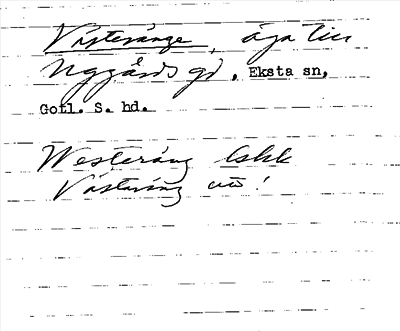 Västeränge, äga till
Nygårds gd, Eksta sn,
Gotl. S. hd.
Westeräng
Västeräng